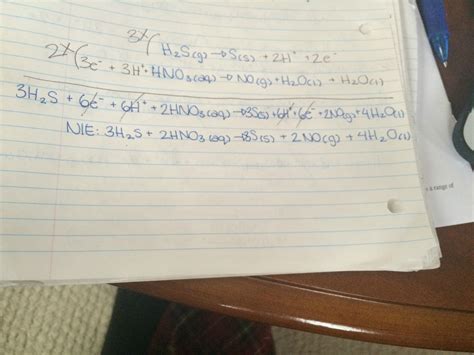 3x( H₂S(g) → S(s) + 2H⁺ + 2e⁻
2x( 3e⁻ + 3H⁺ + HNO₃(aq) → NO(g) + H₂O(l) + H₂O(l)
3H₂S + 6e⁻ + 6H⁺ + 2HNO₃(aq) → 3S(s) + 6H⁺ + 6e⁻ + 2NO(g) + 4H₂O(l)
NIE: 3H₂S + 2HNO₃(aq) → 3S(s) + 2NO(g) + 4H₂O(l)
a range of